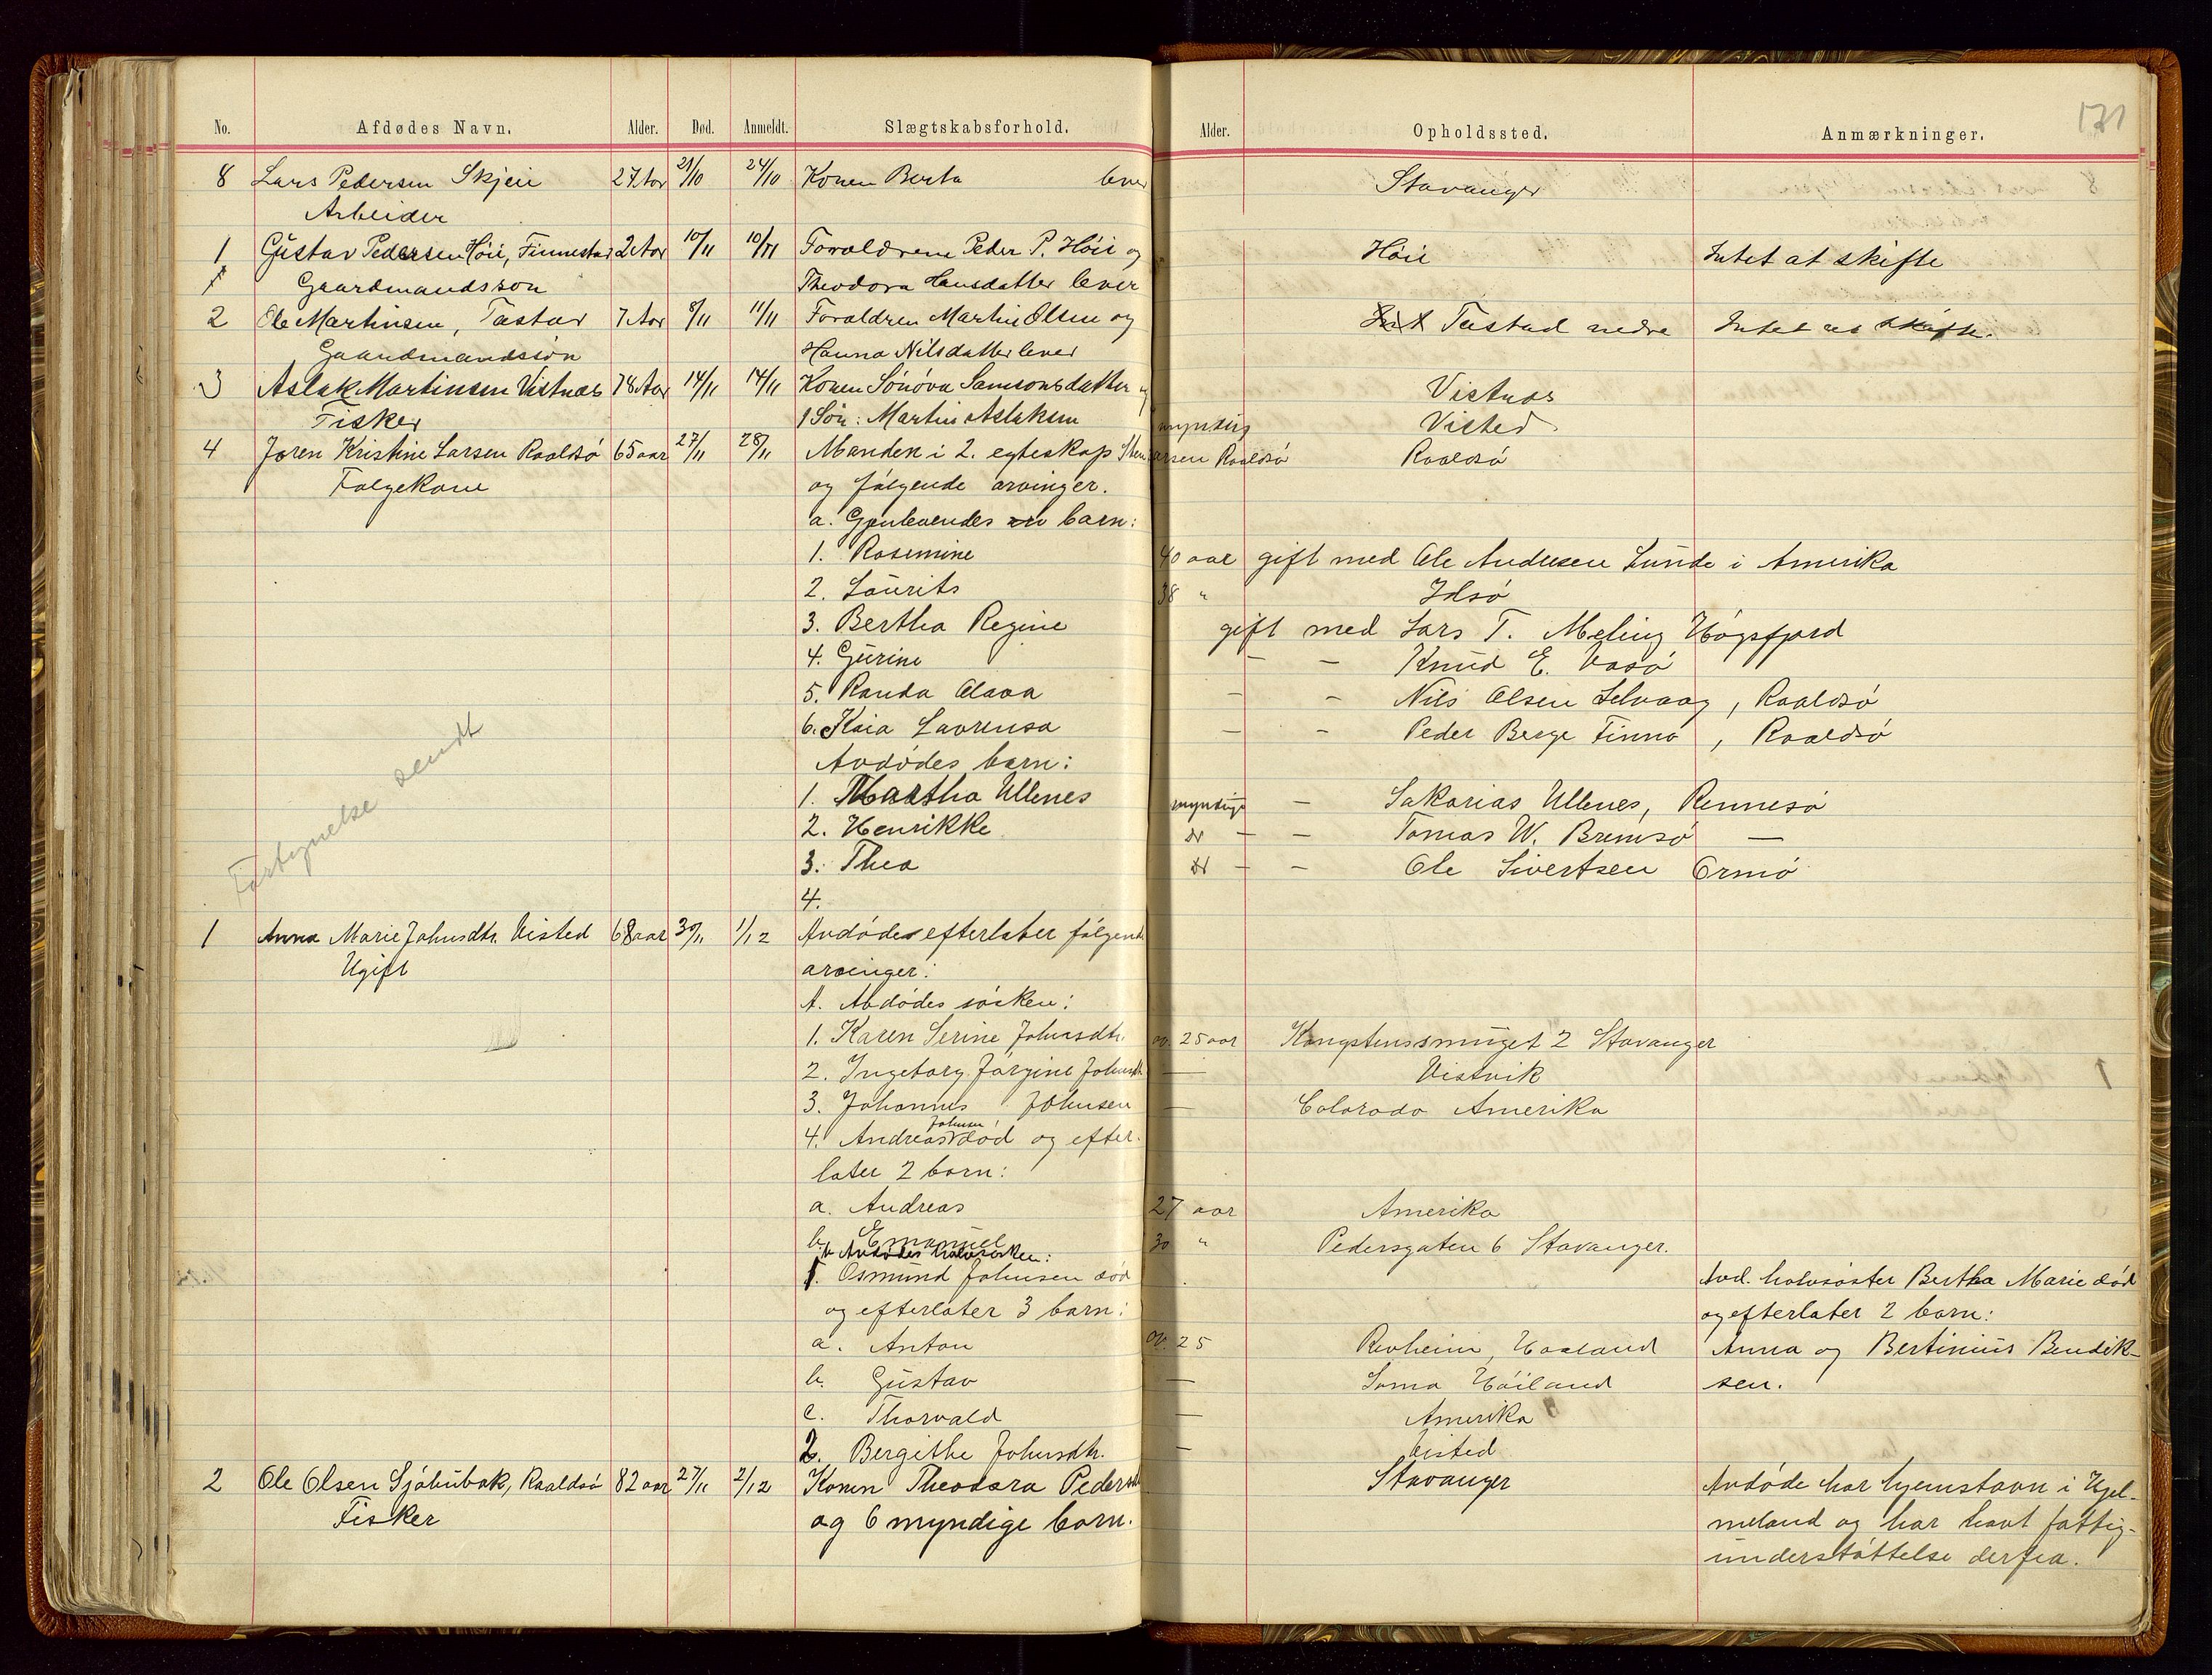 171
No. Afdødes Navn. Alder. Død. Anmeldt. Slægtskabsforhold. Alder. Opholdssted. Anmærkninger.
8 Lars Pedersen Skjeie 27 Aar 21/10 24/10 Konen Berta lever Stavanger
Arbeider
1 Gustav Pedersen Höie, Finnestad 2 Aar 10/11 10/11 Foraldrene Peder P. Höie og Höie Intet at skifte
Gaardmandssön Theodora Hansdatter lever
2 Ole Martinsen, Tastad 7 Aar 8/11 11/11 Foraldren Martin Olsen og Tastad nedre Intet at skifte.
Gaardmandssön Hanna Nilsdatter lever
3 Aslak Martinsen Vistnæs 78 Aar 14/11 14/11 Konen Sönöva Samsonsdatter og Vistnæs
Fisker 1 Sön: Martin Aslaksen myndig Visted
4 Joren Kristine Larsen Roaldsö 65 aar 27/11 28/11 Manden i 2. egteskap Larsen Roaldsö Roaldsö
Følgekone og følgende arvinger.
a. Gjenlevendes barn:
1. Rasmine 40 aar gift med Ole Andersen Lunde i Amerika
2. Laurits 38 " Idsö
3. Bertha Regine gift med Lars T. Meling Högsfjord
4. Gurine - - Knud E. Vasö
5. Randa Olava - - Nils Olsen Selvaag, Roaldsö
6. Kaia Lavrensa - - Peder Berge Finnö, Roaldsö
Avdödes barn:
1. Martha Ullenes myndige - Sakarias Ullenes, Rennesö
2. Henrikke do - - Tomas W. Bremsö —
3. Thea do - - Ole Sivertsen Ormö
4.
Fortegnelse sendt
1 Anna Marie Johnsdtr. Visted 68 aar 30/11 1/12 Avdöde efterlater følgende
Ugift arvinger:
A. Avdödes søsken:
1. Karen Serine Johnsdtr. ov. 25 aar Kongstenssmuget 2 Stavanger
2. Ingeborg Jørgine Johnsdtr — Vistvik
3. Johannes Johnsen — Colorado Amerika
4. Andreas Johnsen död og efter-
later 2 barn:
a. Andreas 27 aar Amerika
b. Emanuel 30 " Pedersgaten 6 Stavanger.
b Avdödes halvsøsken:
1. Osmund Johnsen död Avd. halvsöster Bertha Marie död
og efterlater 3 barn: og efterlater 2 barn:
a. Anton ov. 25 Revheim, Haaland Anna og Bertinius Bendik-
b. Gustav — Soma Höiland sen.
c. Thorvald — Amerika
2. Bergithe Johnsdtr. — Visted
2 Ole Olsen Sjöhübak, Roaldsö 82 aar 27/11 2/12 Konen Theodora Pedersdtr Stavanger Avdöde har hjemstavn i Hjel-
Fisker og 6 myndige barn. meland og har havt fattig-
understöttelse derfra.